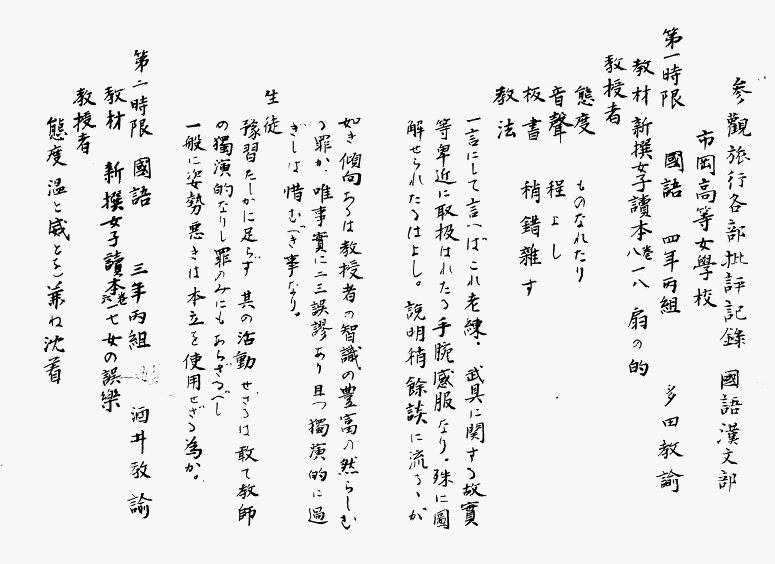 參觀旅行各部批評記錄 國語漢文部
市岡高等女學校
第一時限 國語 四年丙組 多田教諭
教材 新撰女子讀本卷八 一八 扇の的
教授者
態度 ものなれたり
音聲 程よし
板書 稍錯雜す
教法
一言にして言へばこれ老練、武具に關する故實
等卑近に取扱はれたる手腕感服なり。殊に圖
解せられたるはよし。說明稍餘談に流るゝが
如き傾向あるは教授者の智識の豐富の然らしむ
る罪か、唯事實に二三誤謬あり且つ獨演的に過
ぎしは惜むべき事なり。
生徒
豫習たしかに足らず 其の活動せざるは敢て教師
の獨演的なりし罪のみにもあらざるべし
一般に姿勢惡きは本立を使用せざる為か。
第二時限 國語 三年丙組 酒井教諭
教材 新撰女子讀本卷 一七 女の誤樂
教授者
態度 温と威とを兼ね沈着